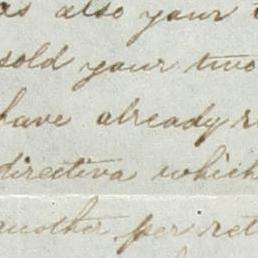 as also your
sold your two
have already r
directiva which
another per ret